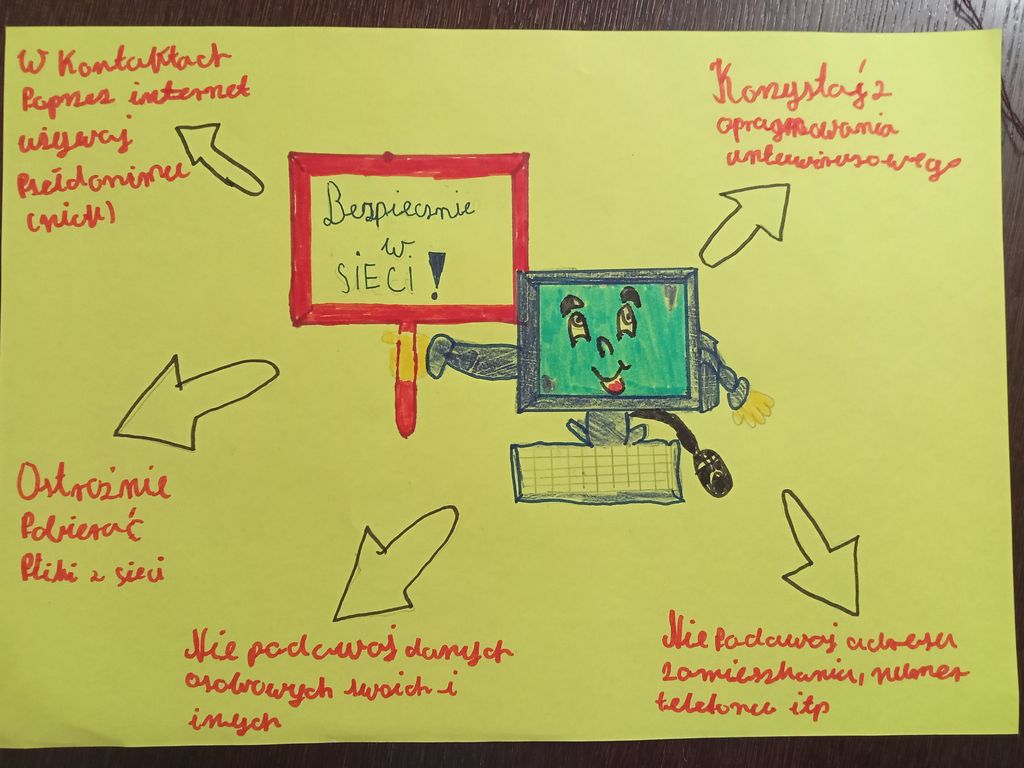 W Kontaktach
Poprzez internet
używaj
Pseudonimu
(nick)
Korzystaj z
oprogramowania
antywirusowego
Bezpiecznie
w
SIECI!
Ostrożnie
Pobierać
Pliki z sieci
Nie podawaj danych
osobowych swoich i
innych
Nie Podawaj adresu
zamieszkania, numer
telefonu itp